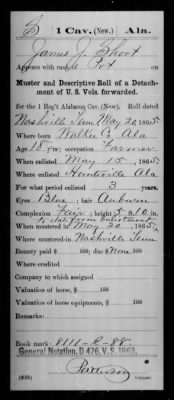 S 1 Cav. (New.) Ala.
James J. Short
Appears with rank of Pvt on
Muster and Descriptive Roll of a Detachment
of U. S. Vols. forwarded.
for the 1 Reg't Alabama Cav. (New). Roll dated
Nashville Tenn May 20, 1865.
Where born Walker Co Ala
Age 18 yrs; occupation Farmer
When enlisted May 15, 1865.
Where enlisted Huntsville Ala
For what period enlisted 3 years.
Eyes Blue; hair Auburn
Complexion Fair; height 5 ft. 10 in.
to date from enrollment
When mustered in May 20, 1865.
Where mustered in Nashville Tenn
Bounty paid $ 100; due $ None 100
Where credited
Company to which assigned
Valuation of horse, $ 100
Valuation of horse equipments, $ 100
Remarks:
Book mark: 8111-R-88.
General Notation, D 476, V.S. 1863.
Patterson
(339) Copyist.